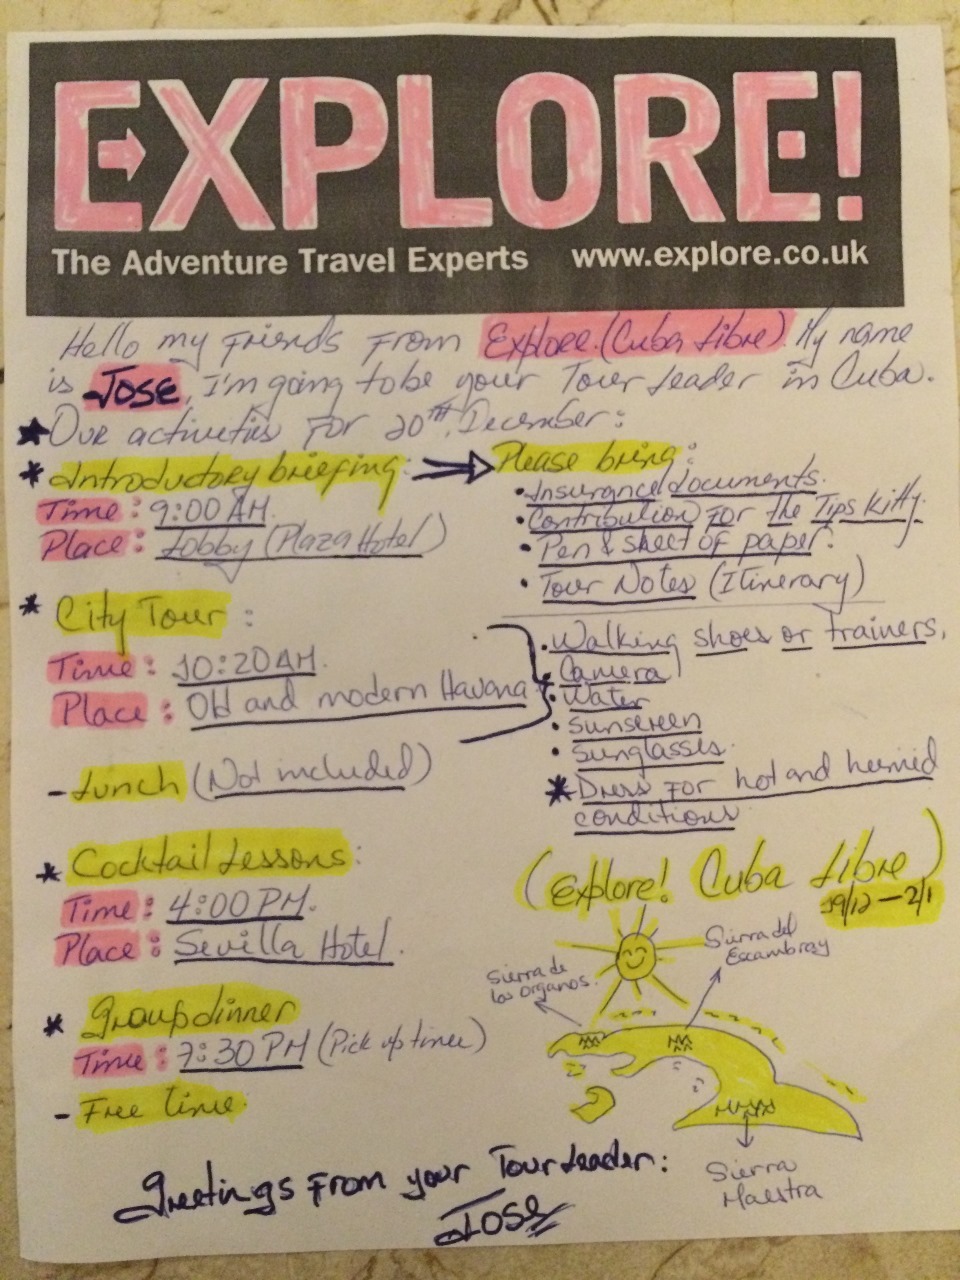 EXPLORE!
The Adventure Travel Experts www.explore.co.uk
Hello my Friends From Explore.(Cuba Libre). My name
is Jose, I'm going to be your Tour Leader in Cuba.
Our activities For 20TH December:
* Introductory briefing:
Time: 9:00 AM.
Place: Lobby (Plaza Hotel)
Please bring:
• Insurance documents.
• Contribution for the Tips Kitty.
• Pen & sheet of paper.
• Tour Notes (Itinerary)
* City Tour:
Time: 10:20 AM.
Place: Old and modern Havana
• Walking shoes or trainers,
• Camera
• Water
• Sunscreen
• Sunglasses.
* Dress For hot and humid
conditions
- Lunch (Not included)
* Cocktail Lessons:
Time: 4:00 PM.
Place: Sevilla Hotel.
* Group dinner
Time: 7:30 PM (Pick up time)
- Free time.
(Explore! Cuba Libre)
19/12 – 2/1
Sierra de
los Organos.
Sierra del
Escambray
Sierra
Maestra
Greetings From your Tour Leader:
Jose